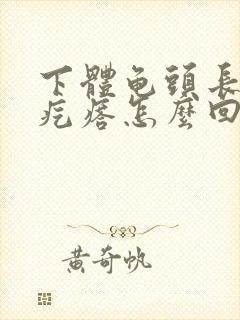 下體龟頭長
疙瘩怎麼回
黃奇帆